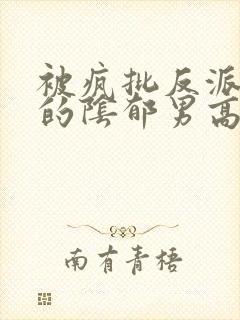 被疯批反派
的阴郁男高
南有青梧